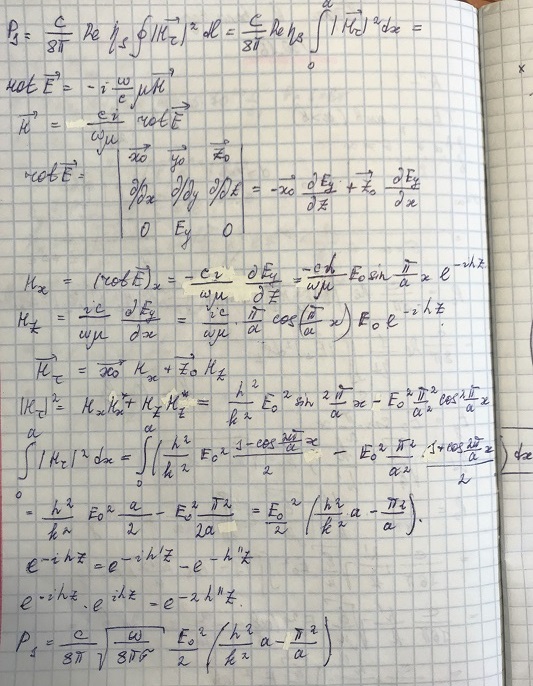 P_s = c/8π Re η_s ∮|H_τ⃗|² dl = c/8π Re η_s ∫₀ᵃ |H_τ⃗|² dx =
rot E⃗ = -i ω/c μH⃗
H⃗ = ci/ωμ rot E⃗
rot E⃗ = | x⃗₀ y⃗₀ z⃗₀ |
| ∂/∂x ∂/∂y ∂/∂z | = -x⃗₀ ∂E_y/∂z + z⃗₀ ∂E_y/∂x
| 0 E_y 0 |
H_x = (rot E⃗)_x = -ci/ωμ ∂E_y/∂z = -ch/ωμ E₀ sin π/a x e^{-ihz}
H_z = ic/ωμ ∂E_y/∂x = ic/ωμ · π/a cos(π/a x) E₀ e^{-ihz}
H_τ⃗ = x⃗₀ H_x + z⃗₀ H_z
|H_τ|² = H_x H_x* + H_z H_z* = h²/k² E₀² sin² π/a x - E₀² π²/a² cos² π/a x
∫₀ᵃ |H_τ|² dx = ∫₀ᵃ (h²/k² E₀² (1-cos 2π/a x)/2 - E₀² π²/a² · (1+cos 2π/a x)/2) dx
= h²/k² E₀² a/2 - E₀² π²/2a = E₀²/2 (h²/k² a - π²/a).
e^{-ihz} = e^{-ih'z} - e^{-h''z}
e^{-ihz} · e^{ihz} = e^{-2h''z}.
P_s = c/8π √(ω/8πσ) E₀²/2 (h²/k² a - π²/a)